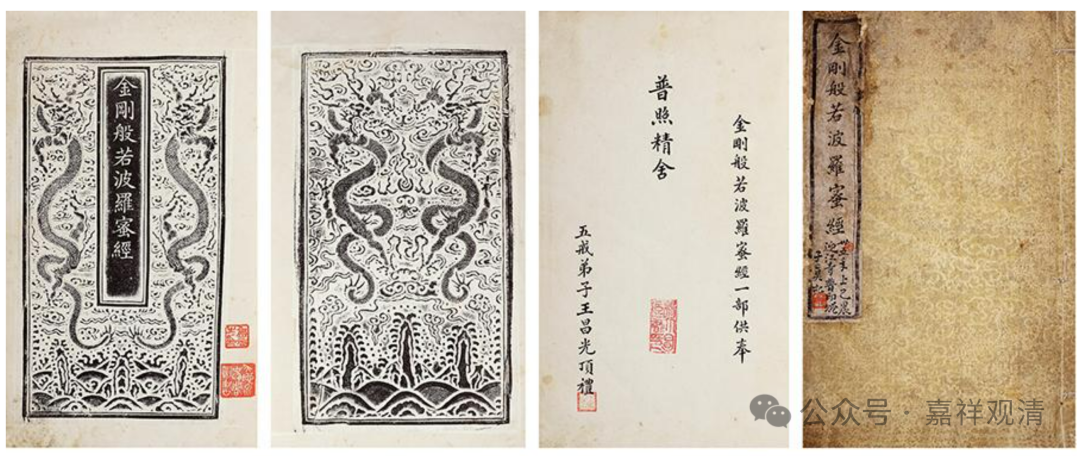 金剛般若波羅蜜經
金剛般若波羅蜜經一部供奉
普照精舍
五戒弟子王昌光頂禮
金剛般若波羅蜜經
公众号·嘉祥观清